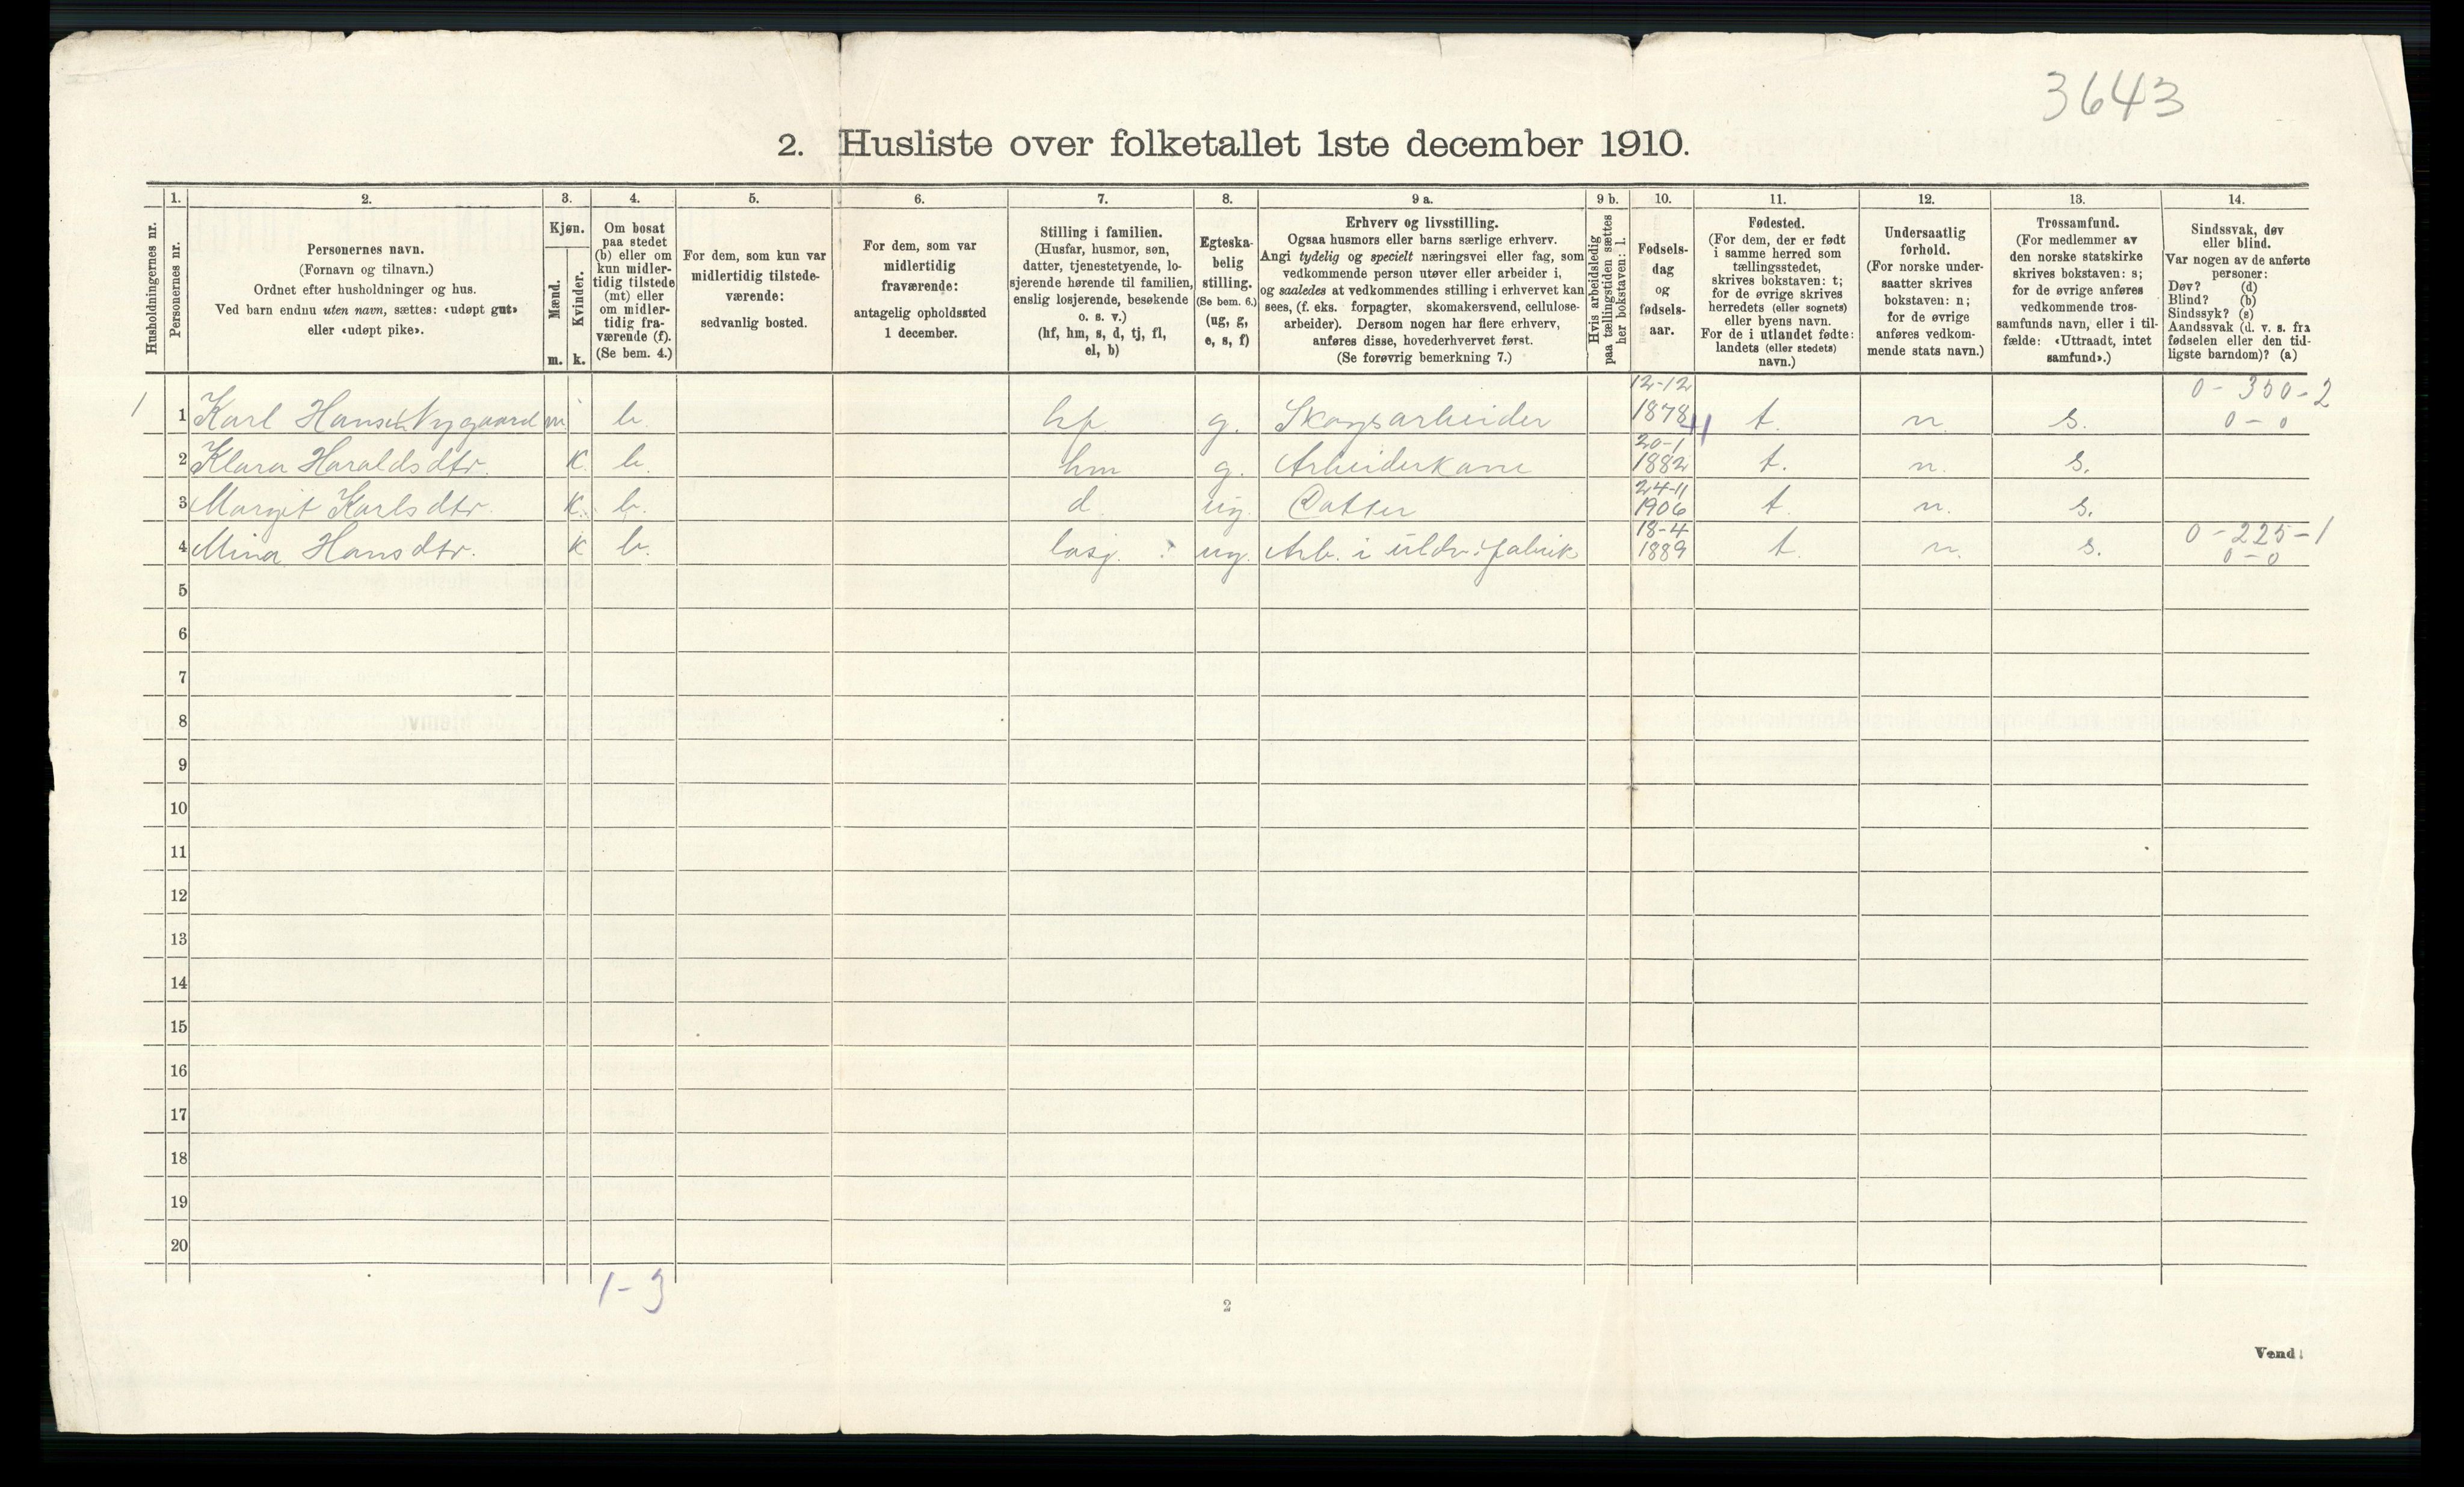 3643
2. Husliste over folketallet 1ste december 1910.
Husholdningernes nr.
1.
Personernes nr.
2.
Personernes navn.
(Fornavn og tilnavn.)
Ordnet efter husholdninger og hus.
Ved barn endnu uten navn, sættes: «udøpt gut»
eller «udøpt pike».
3.
Kjøn.
Mænd.
m.
Kvinder.
k.
4.
Om bosat
paa stedet
(b) eller om
kun midler-
tidig tilstede
(mt) eller
om midler-
tidig fra-
værende (f).
(Se bem. 4.)
5.
For dem, som kun var
midlertidig tilstede-
værende:
sedvanlig bosted.
6.
For dem, som var
midlertidig
fraværende:
antagelig opholdssted
1 december.
7.
Stilling i familien.
(Husfar, husmor, søn,
datter, tjenestetyende, lo-
sjerende hørende til familien,
enslig losjerende, besøkende
o. s. v.)
(hf, hm, s, d, tj, fl,
el, b)
8.
Egteska-
belig
stilling.
(Se bem. 6.)
(ug, g,
e, s, f)
9 a.
Erhverv og livsstilling.
Ogsaa husmors eller barns særlige erhverv.
Angi tydelig og specielt næringsvei eller fag, som
vedkommende person utøver eller arbeider i,
og saaledes at vedkommendes stilling i erhvervet kan
sees, (f. eks. forpagter, skomakersvend, cellulose-
arbeider). Dersom nogen har flere erhverv,
anføres disse, hovederhvervet først.
(Se forøvrig bemerkning 7.)
9 b.
Hvis arbeidsledig
paa tællingstiden sættes
her bokstaven: l.
10.
Fødsels-
dag
og
fødsels-
aar.
11.
Fødested.
(For dem, der er født
i samme herred som
tællingsstedet,
skrives bokstaven: t;
for de øvrige skrives
herredets (eller sognets)
eller byens navn.
For de i utlandet fødte:
landets (eller stedets)
navn.)
12.
Undersaatlig
forhold.
(For norske under-
saatter skrives
bokstaven: n;
for de øvrige
anføres vedkom-
mende stats navn.)
13.
Trossamfund.
(For medlemmer av
den norske statskirke
skrives bokstaven: s;
for de øvrige anføres
vedkommende tros-
samfunds navn, eller i til-
fælde: «Uttraadt, intet
samfund».)
14.
Sindssvak, døv
eller blind.
Var nogen av de anførte
personer:
Døv? (d)
Blind? (b)
Sindssyk? (s)
Aandssvak (d. v. s. fra
fødselen eller den tid-
ligste barndom)? (a)
12-12 0-300-2
1 1 Karl Hansen Nygaard m b. hf g. Skogsarbeider 1878 t. n. s. 0-0
20-1
2 Klara Haraldsdtr. k. b. hm g. Arbeiderkone 1882 t. n. s.
24-11
3 Margit Karlsdtr. k. b. d. ug. Datter 1906 t. n. s.
18-4 0-225-1
4 Mina Hansdtr. k b. losj. ug. Arb. i uldv.fabrik 1889 t. n. s. 0-0
5
6
7
8
9
10
11
12
13
14
15
16
17
18
19
20
1-3
2
Vend!